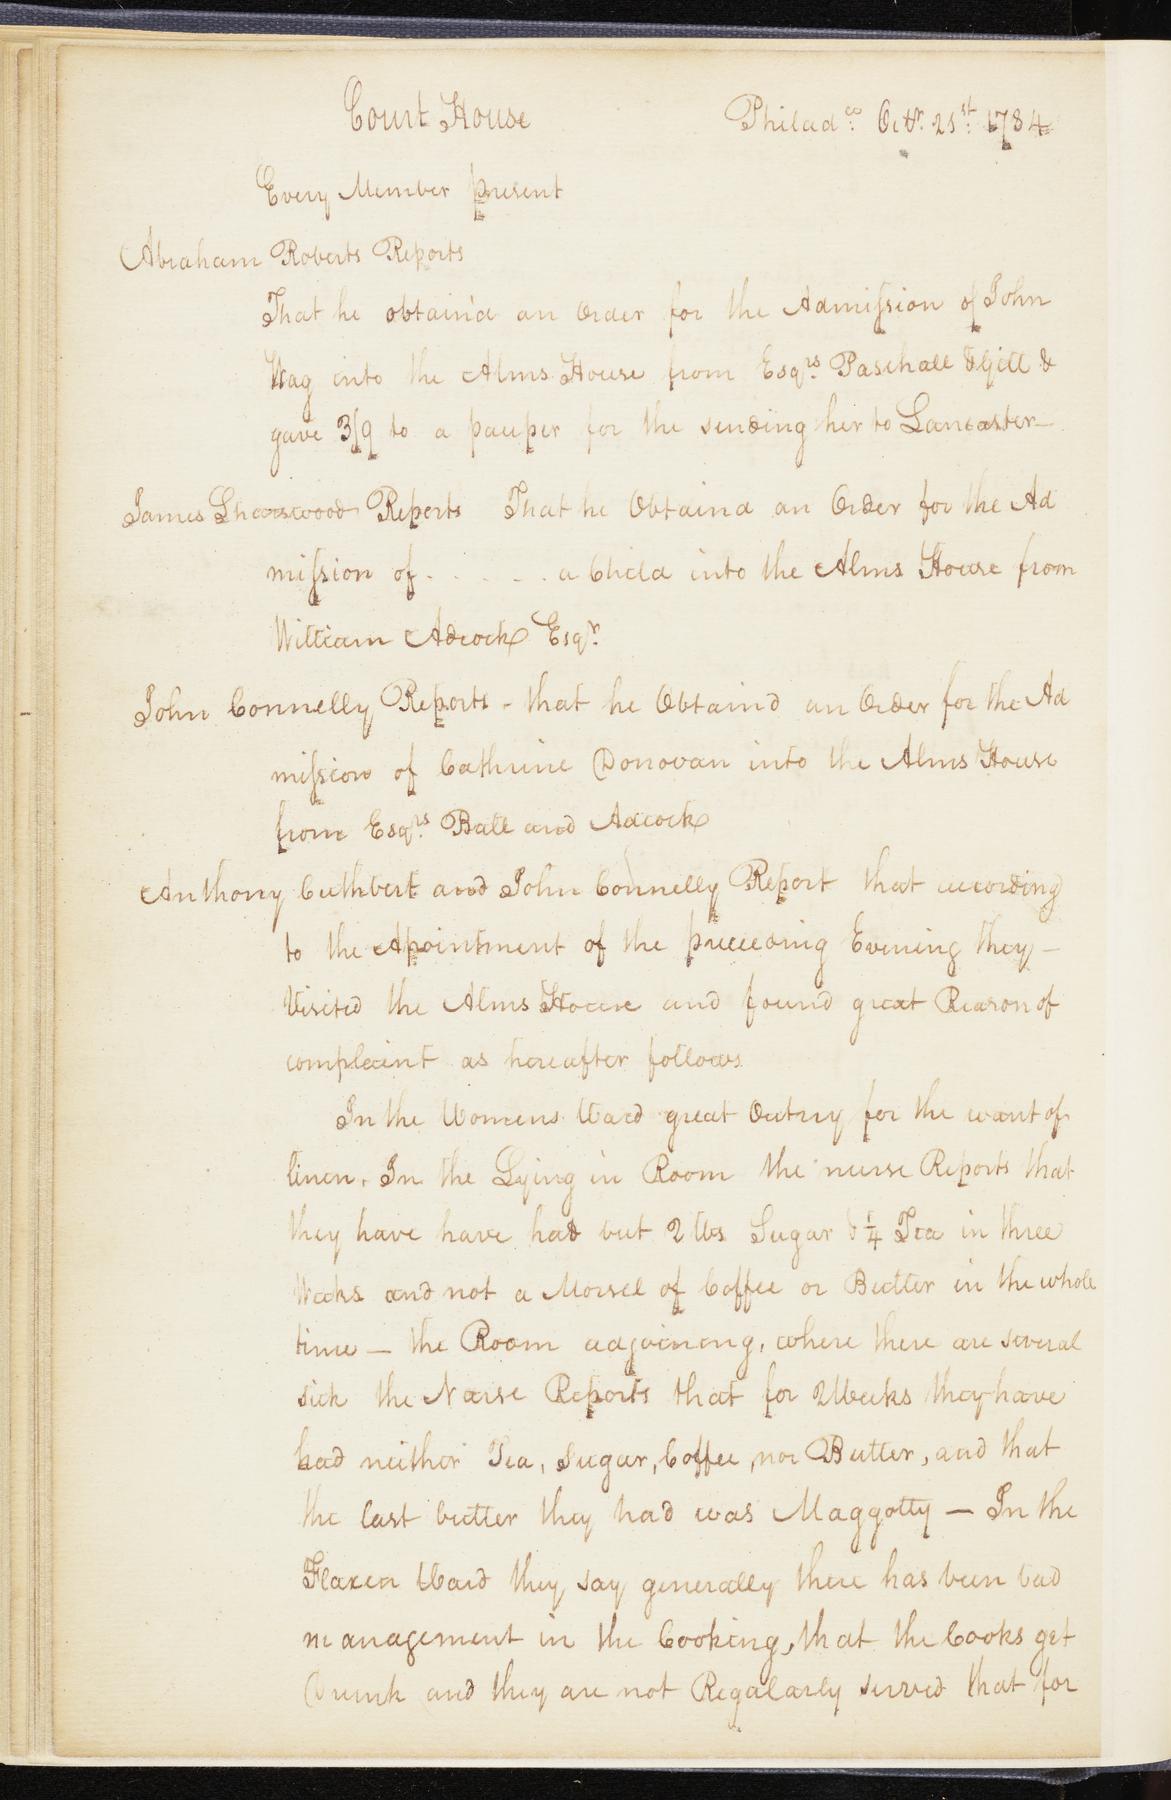 Court House Philad.ᵃ Octr. 21st. 1784
Every Member present
Abraham Roberts Reports
That he obtain'd an Order for the Admission of John
Wag into the Alms House from Esqrs. Paschall & Gill &
gave 3/9 to a pauper for the sending her to Lancaster—
James Sharswood Reports That he Obtaind an Order for the Ad
mission of . . . . . . a Child into the Alms House from
William Adcock Esqr.
John Connelly Reports - that he Obtaind an Order for the Ad
mission of Cathrine Donovan into the Alms House
from Esqrs. Ball and Adcock
Anthony Cuthbert and John Connelly Report that according
to the Apointment of the preceeding Evening they —
Visited the Alms House and found great Reason of
complaint as hereafter follows
In the Womens Ward great Outcry for the want of
linen. In the Lying in Room the nurse Reports that
they have have had but 2 lbs Sugar & ¼ Tea in three
Weeks and not a Morsel of Coffee or Butter in the whole
time — the Room adjoining, where there are several
sick the Nurse Reports that for 2 Weeks they have
had neither Tea, Sugar, Coffee, nor Butter, and that
the last butter they had was Maggotty — In the
Flaxen Ward they say generally there has been bad
management in the Cooking, that the Cooks get
Drunk and they are not Regalarly served that for